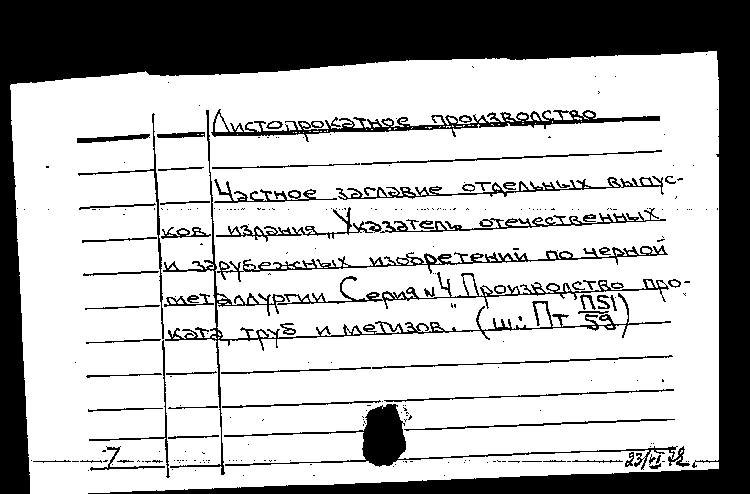 Листопрокатное производство
Частное заглавие отдельных выпус-
ков издания „Указатель отечественных
и зарубежных изобретений по черной
металлургии Серия №4 Производство про-
ката, труб и метизов." (ш.: Пт П51/59)
7